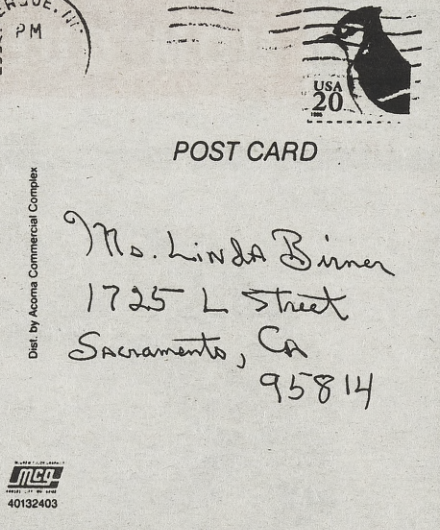 PM
USA
20
POST CARD
Dist. by Acoma Commercial Complex
Ms. Linda Birner
1725 L Street
Sacramento, CA
95814
mcg
40132403